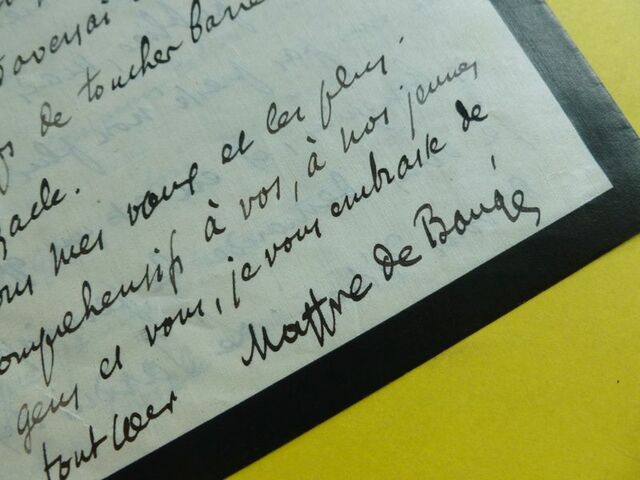 de toucher barre
mes vœux et les plus
compréhensifs à vos, à nos jeunes
gens et vous, je vous embrasse de
tout cœur Maffre de Baugé